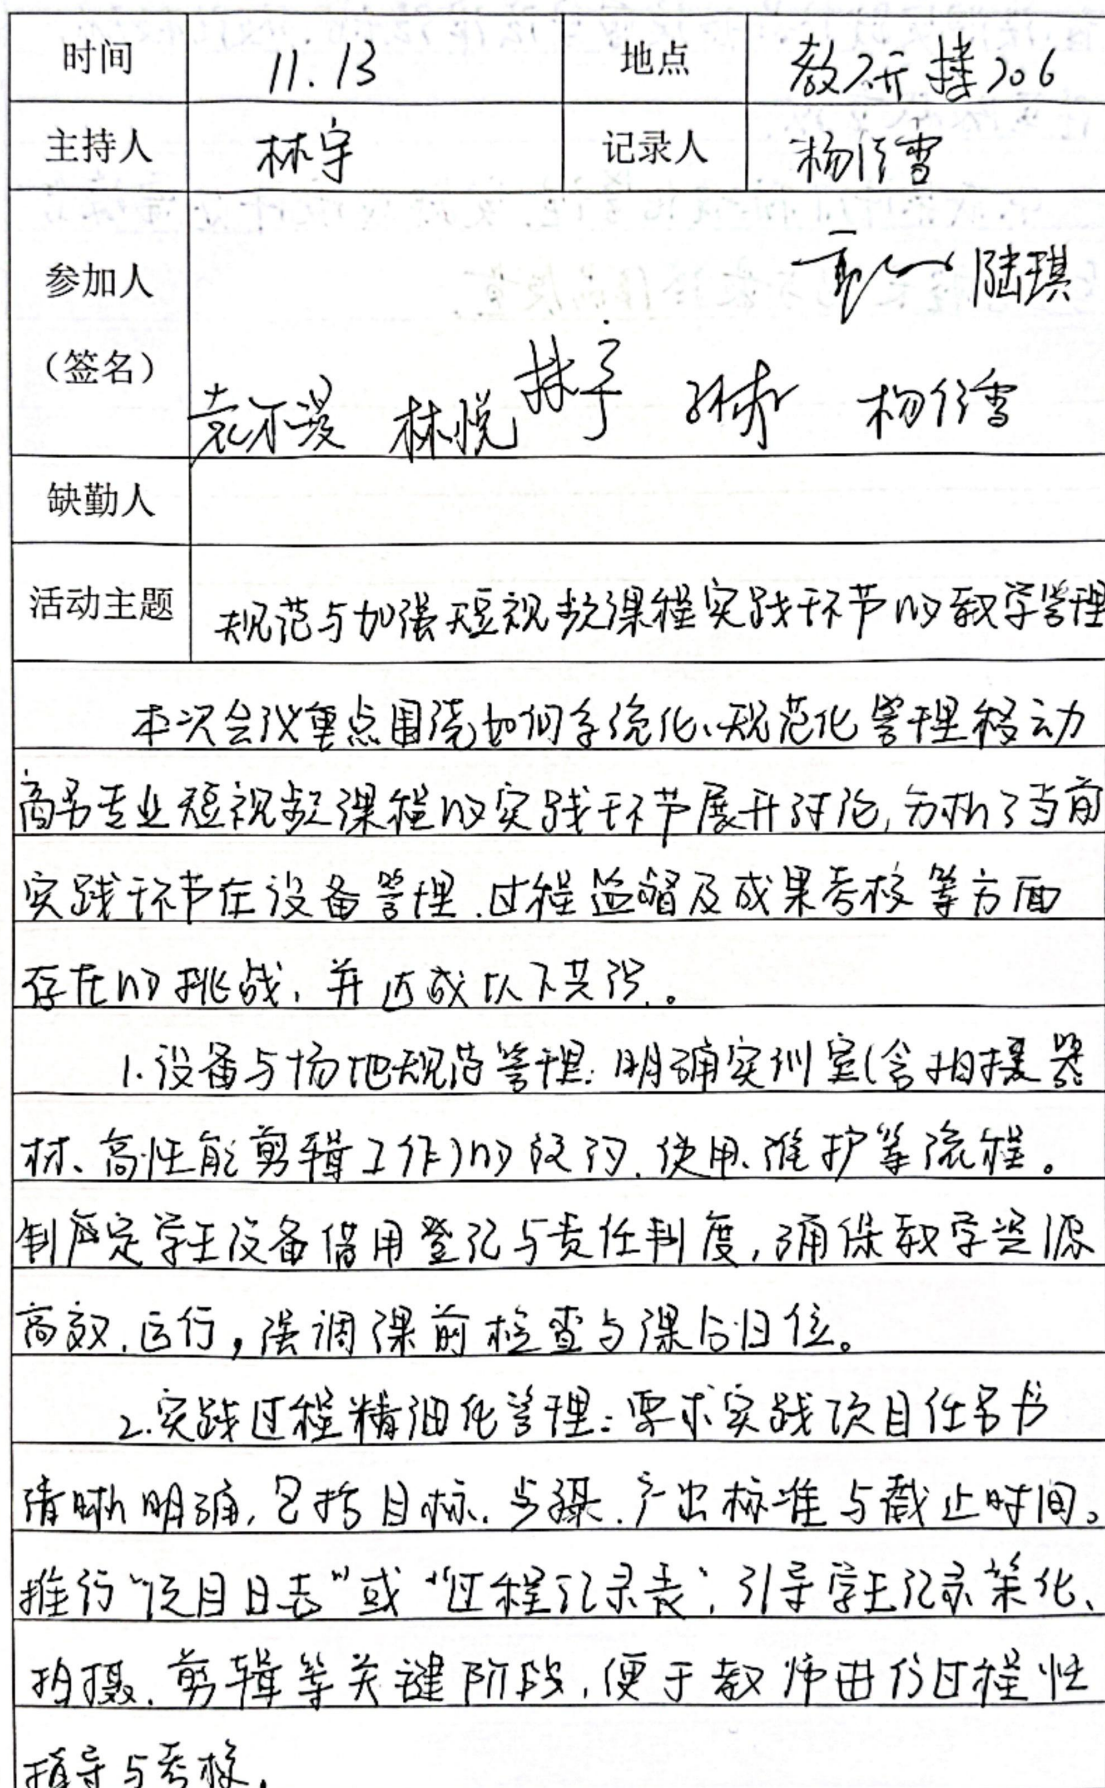 时间 11.13 地点 教研楼206
主持人 林宇 记录人 杨倩雪
参加人 陆琪
（签名） 林悦 林宇 杨倩雪
缺勤人
活动主题 规范与加强短视频课程实践环节的教学管理
本次会议重点围绕如何系统化、规范化管理移动
商务专业短视频课程的实践环节展开讨论,分析了当前
实践环节在设备管理、过程监督及成果考核等方面
存在的挑战,并达成以下共识。
1.设备与场地规范管理:明确实训室(含拍摄器
材、高性能剪辑工作)的预约、使用、维护等流程。
制定学生设备借用登记与责任制度,确保教学资源
高效、运行,强调课前检查与课后归位。
2.实践过程精细化管理:要求实践项目任务书
清晰明确,包括目标、步骤、产出标准与截止时间。
推行“项目日志”或“过程记录表”,引导学生记录策化、
拍摄、剪辑等关键阶段,便于教师进行过程性
指导与考核,